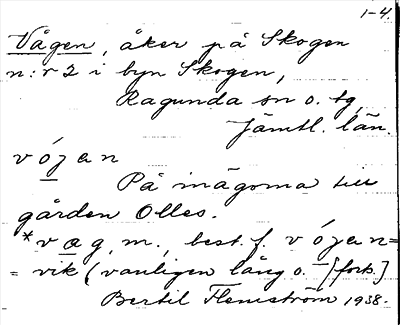 1-4.
Vågen, åker på Skogen
n:r 2 i byn Skogen,
Ragunda sn o. tg,
Jämtl. län.
vóȷan
På inägorna till
gården Olles.
*vag, m., best. f. vóȷan=
=vik (vanligen lång o. [forts.]
Bertil Flemström 1938.